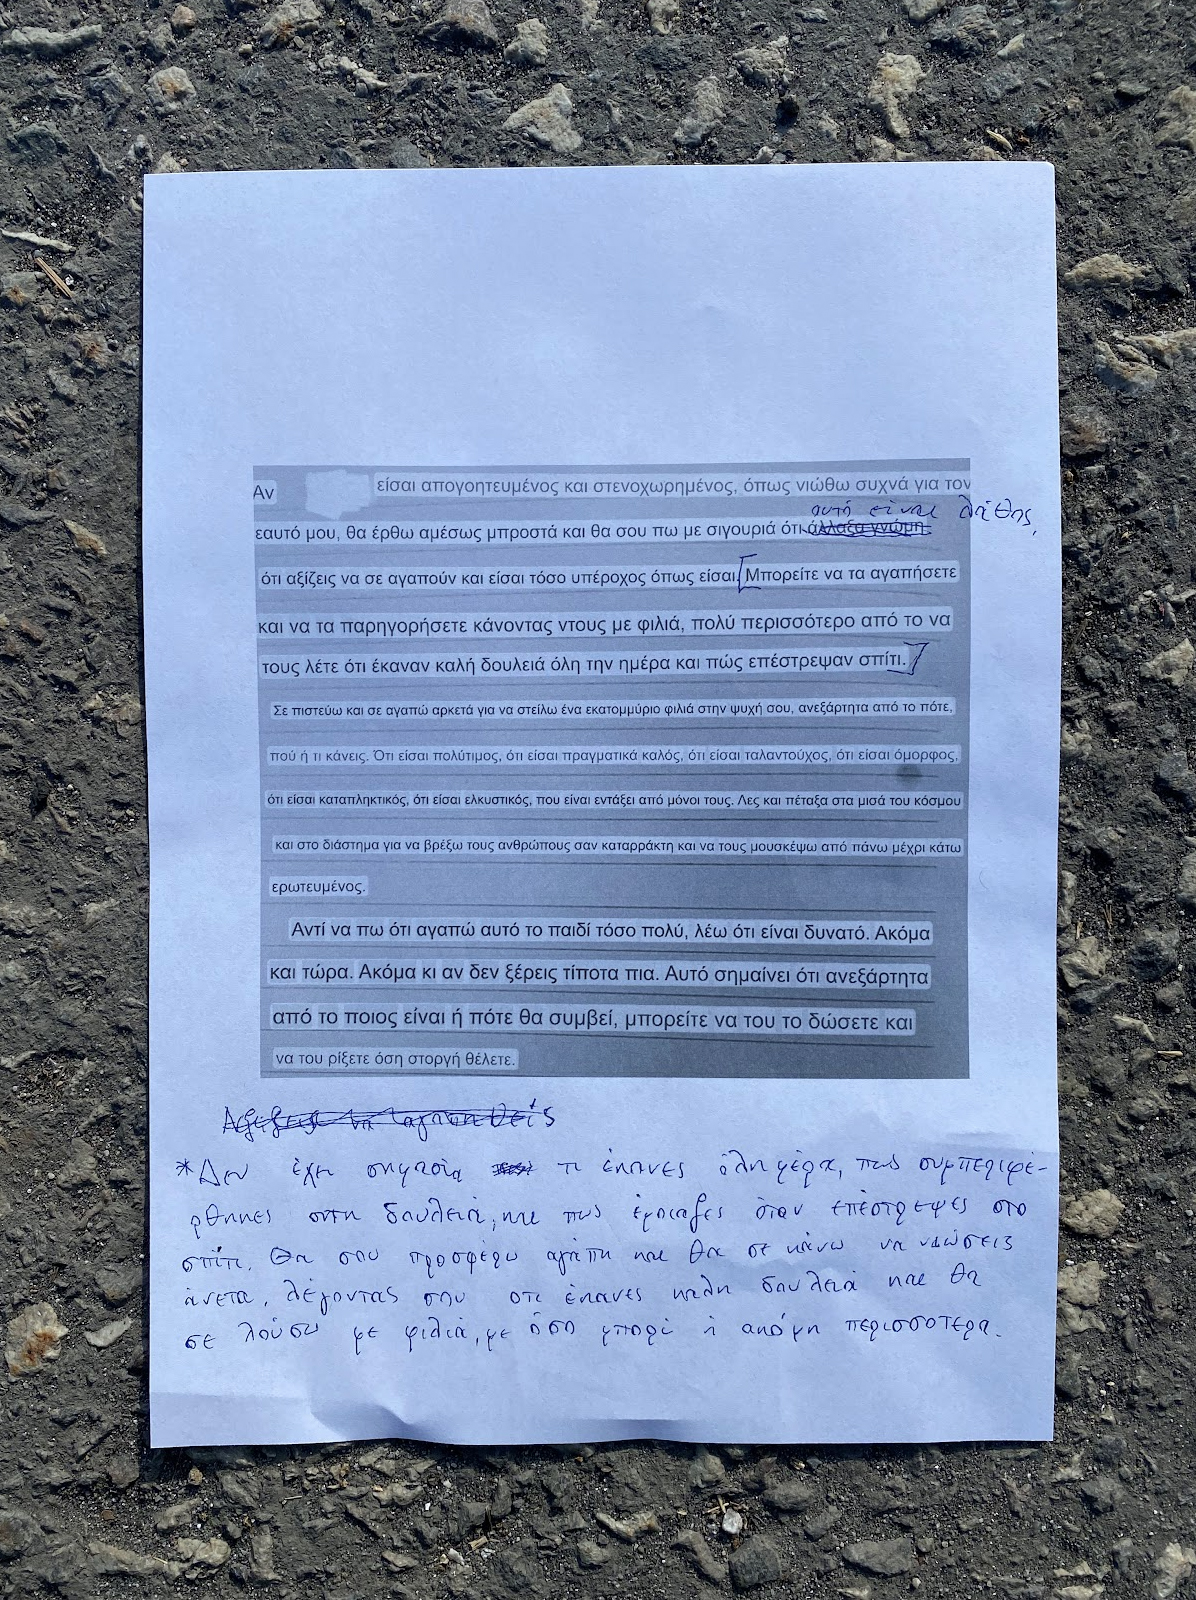 Αν είσαι απογοητευμένος και στενοχωρημένος, όπως νιώθω συχνά για τον
αυτή είναι λάθος,
εαυτό μου, θα έρθω αμέσως μπροστά και θα σου πω με σιγουριά ότι άλλαξα γνώμη.
ότι αξίζεις να σε αγαπούν και είσαι τόσο υπέροχος όπως είσαι. [Μπορείτε να τα αγαπήσετε
και να τα παρηγορήσετε κάνοντας ντους με φιλιά, πολύ περισσότερο από το να
τους λέτε ότι έκαναν καλή δουλειά όλη την ημέρα και πώς επέστρεψαν σπίτι.]
Σε πιστεύω και σε αγαπώ αρκετά για να στείλω ένα εκατομμύριο φιλιά στην ψυχή σου, ανεξάρτητα από το πότε,
πού ή τι κάνεις. Ότι είσαι πολύτιμος, ότι είσαι πραγματικά καλός, ότι είσαι ταλαντούχος, ότι είσαι όμορφος,
ότι είσαι καταπληκτικός, ότι είσαι ελκυστικός, που είναι εντάξει από μόνοι τους. Λες και πέταξα στα μισά του κόσμου
και στο διάστημα για να βρέξω τους ανθρώπους σαν καταρράκτη και να τους μουσκέψω από πάνω μέχρι κάτω
ερωτευμένος.
Αντί να πω ότι αγαπώ αυτό το παιδί τόσο πολύ, λέω ότι είναι δυνατό. Ακόμα
και τώρα. Ακόμα κι αν δεν ξέρεις τίποτα πια. Αυτό σημαίνει ότι ανεξάρτητα
από το ποιος είναι ή πότε θα συμβεί, μπορείτε να του το δώσετε και
να του ρίξετε όση στοργή θέλετε.
Αξίζεις να αγαπηθείς
*Δεν έχει σημασία τι έκανες όλη μέρα, πως συμπεριφέ-
ρθηκες στη δουλειά, και πως έμοιαζες όταν επέστρεψες στο
σπίτι. Θα σου προσφέρω αγάπη και θα σε κάνω να νιώσεις
άνετα, λέγοντας σου οτι έκανες καλη δουλειά και θα
σε λούσω με φιλιά, με όσο μπορώ ή ακόμη περισσοτερα.